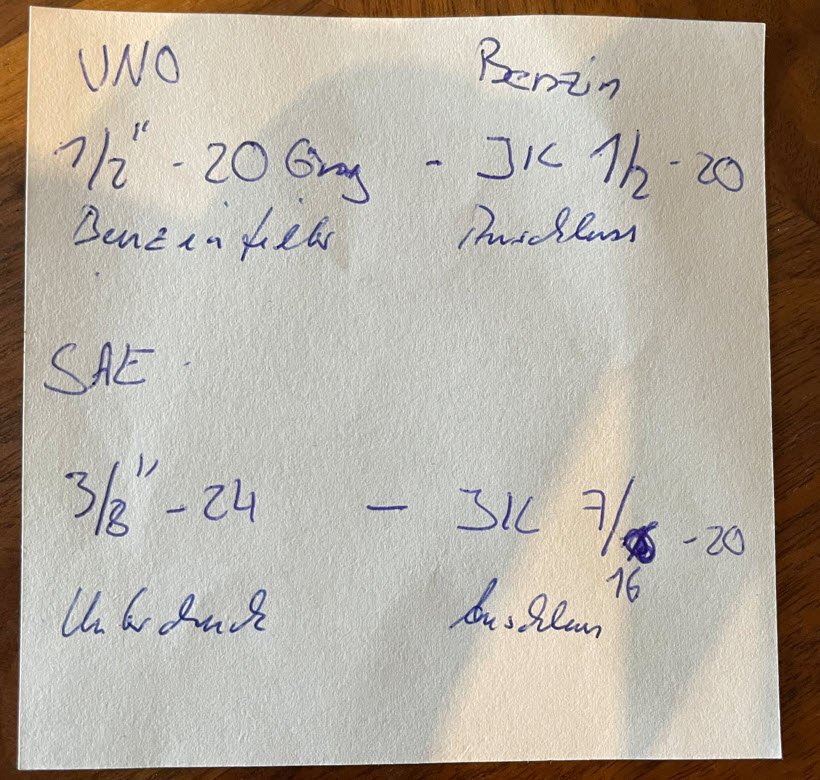 UNO Benzin
1/2" - 20 Gang - JK 1/2 - 20
Benzinfilter Anschluss
SAE
3/8" - 24 - JK 7/16 - 20
Unterdruck Anschluss